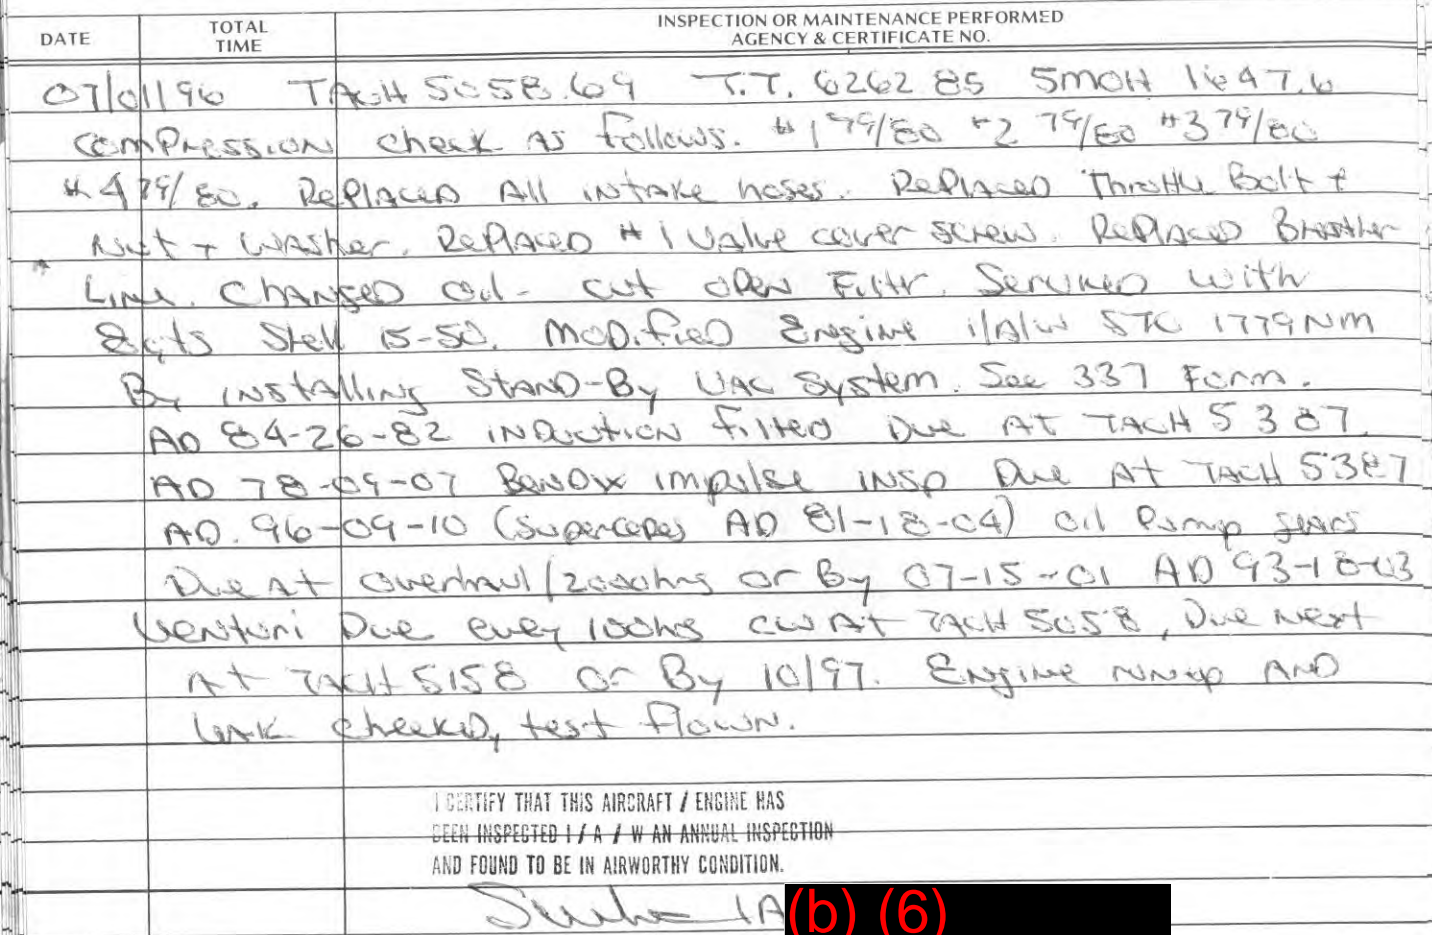 DATE
TOTAL TIME
INSPECTION OR MAINTENANCE PERFORMED
AGENCY & CERTIFICATE NO.
07/01/96 TACH 5058.69 T.T. 6262.85 SMOH 1647.6
Compression check AS Follows. #1 79/80 #2 79/80 #3 79/80
#4 79/80. Replaced All intake hoses. Replaced Throttle Bolt +
Nut + Washer. Replaced #1 Valve cover screw. Replaced Breather
Line. Changed Oil - cut open Filtr. Serviced with
8qts Shell 15-50. Modified Engine i/A/w STC 1779NM
By installing Stand-By VAC System. See 337 Form.
AD 84-26-02 induction filter Due At TACH 5387.
AD 78-09-07 Bendix impulse insp Due At TACH 5387
AD. 96-09-10 (Supercedes AD 81-18-04) Oil Pump gears
Due At overhaul/2000hrs or By 07-15-01 AD 93-18-03
Venturi Due every 100hrs cw At TACH 5058, Due Next
At TACH 5158 or By 10/97. Engine runup And
leak checked, test flown.
I CERTIFY THAT THIS AIRCRAFT / ENGINE HAS
BEEN INSPECTED I / A / W AN ANNUAL INSPECTION
AND FOUND TO BE IN AIRWORTHY CONDITION.
IA (b) (6)